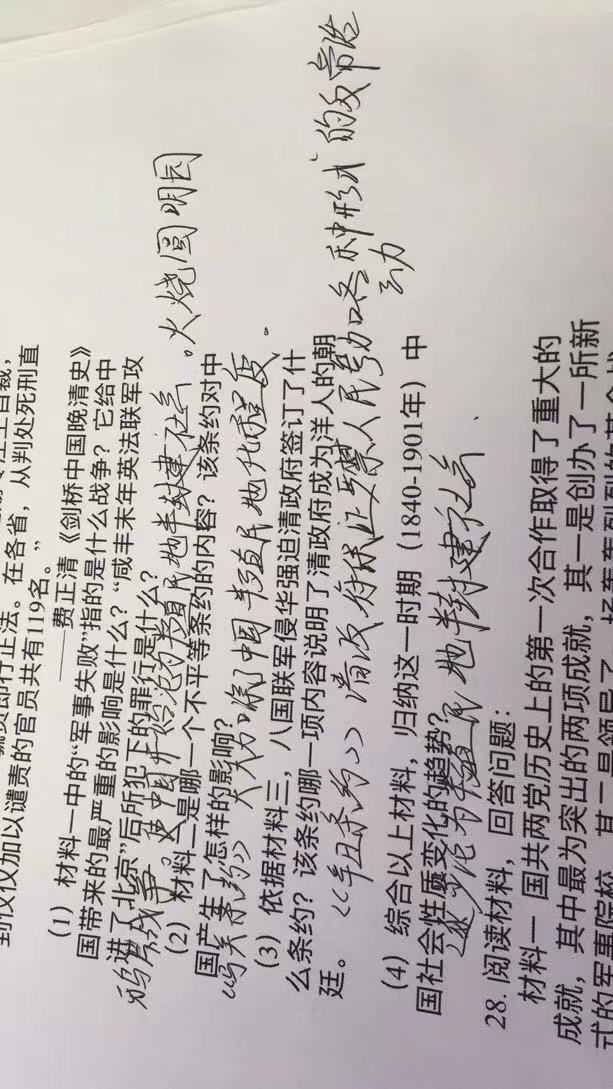 到仅仅加以谴责的官员共有119名。”
在各省，从判处死刑直
——费正清《剑桥中国晚清史》
（1）材料一中的“军事失败”指的是什么战争？它给中
国带来的最严重的影响是什么？“咸丰末年英法联军攻
进了北京”后所犯下的罪行是什么？
鸦片战争 使中国开始沦为半殖民地半封建社会。火烧圆明园
（2）材料二是哪一个不平等条约的内容？该条约对中
国产生了怎样的影响？
《马关条约》大大加深了中国半殖民地化程度。
（3）依据材料三，八国联军侵华强迫清政府签订了什
么条约？该条约哪一项内容说明了清政府成为洋人的朝
廷。
《辛丑条约》清政府保证严禁人民参加各种形式的反帝活
动
（4）综合以上材料，归纳这一时期（1840-1901年）中
国社会性质变化的趋势？
逐步沦为半殖民地半封建社会、
28. 阅读材料，回答问题：
材料一 国共两党历史上的第一次合作取得了重大的
成就，其中最为突出的两项成就，其一是创办了一所新
式的军事院校，其二是领导了一场轰轰烈烈的革命战